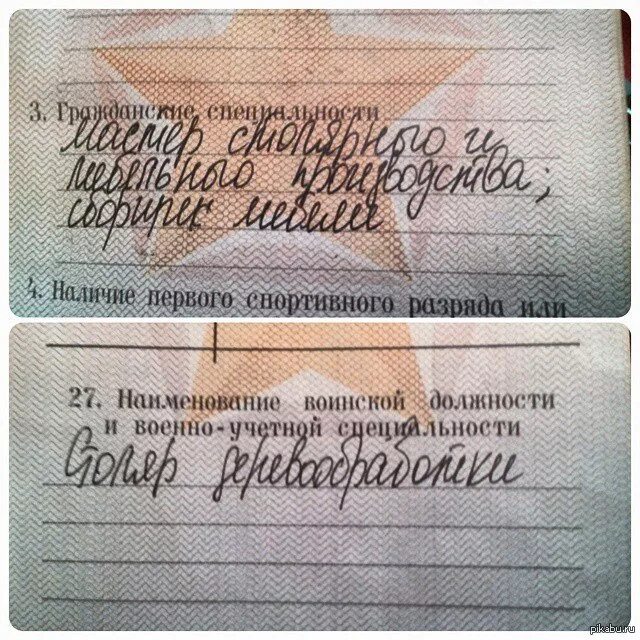 3. Гражданские специальности
мастер столярного и
мебельного производства;
сборщик мебели
4. Наличие первого спортивного разряда или
27. Наименование воинской должности
и военно-учетной специальности
Столяр деревообработки
pikabu.ru